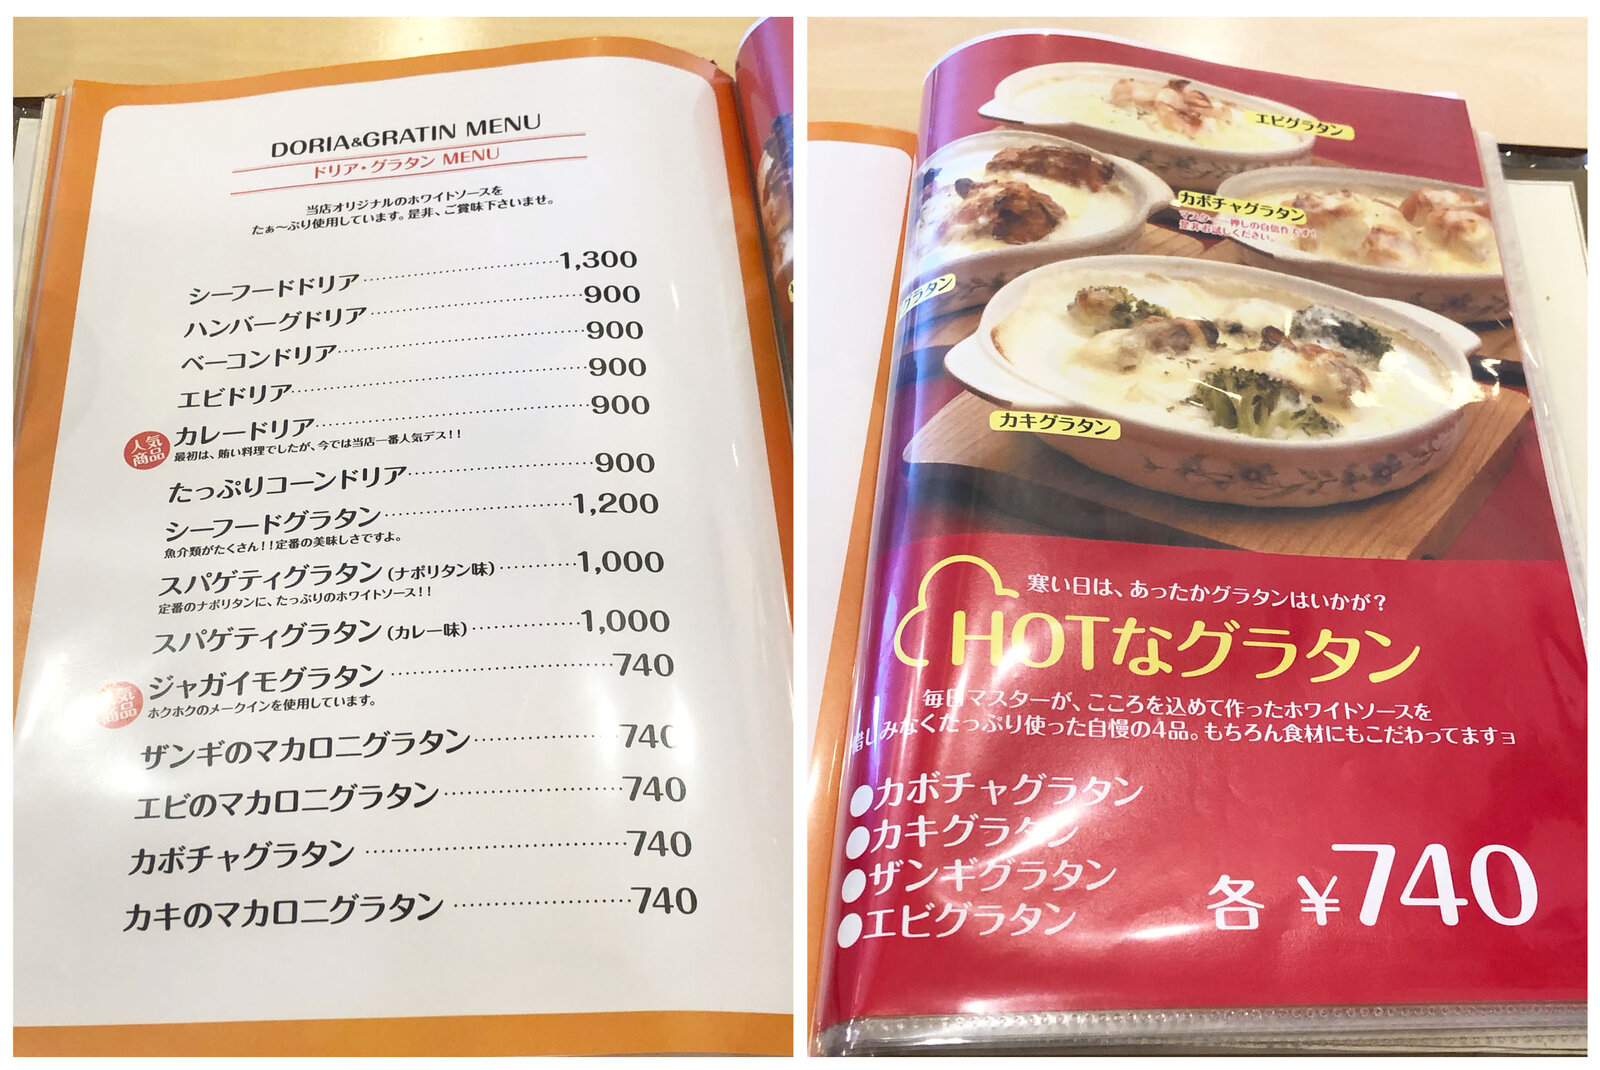 DORIA&GRATIN MENU
ドリア・グラタン MENU
当店オリジナルのホワイトソースを
たぁ〜ぷり使用しています。是非、ご賞味下さいませ。
シーフードドリア 1,300
ハンバーグドリア 900
ベーコンドリア 900
エビドリア 900
人気商品
カレードリア 900
最初は、賄い料理でしたが、今では当店一番人気デス!!
たっぷりコーンドリア 900
シーフードグラタン 1,200
魚介類がたくさん!!定番の美味しさですよ。
スパゲティグラタン(ナポリタン味) 1,000
定番のナポリタンに、たっぷりのホワイトソース!!
スパゲティグラタン(カレー味) 1,000
ジャガイモグラタン 740
ホクホクのメークインを使用しています。
ザンギのマカロニグラタン 740
エビのマカロニグラタン 740
カボチャグラタン 740
カキのマカロニグラタン 740
エビグラタン
カボチャグラタン
マスター一押しの自信作です!
是非お試しください。
グラタン
カキグラタン
寒い日は、あったかグラタンはいかが?
HOTなグラタン
毎日マスターが、こころを込めて作ったホワイトソースを
惜しみなくたっぷり使った自慢の4品。もちろん食材にもこだわってますョ
●カボチャグラタン
●カキグラタン
●ザンギグラタン
●エビグラタン
各 ¥740